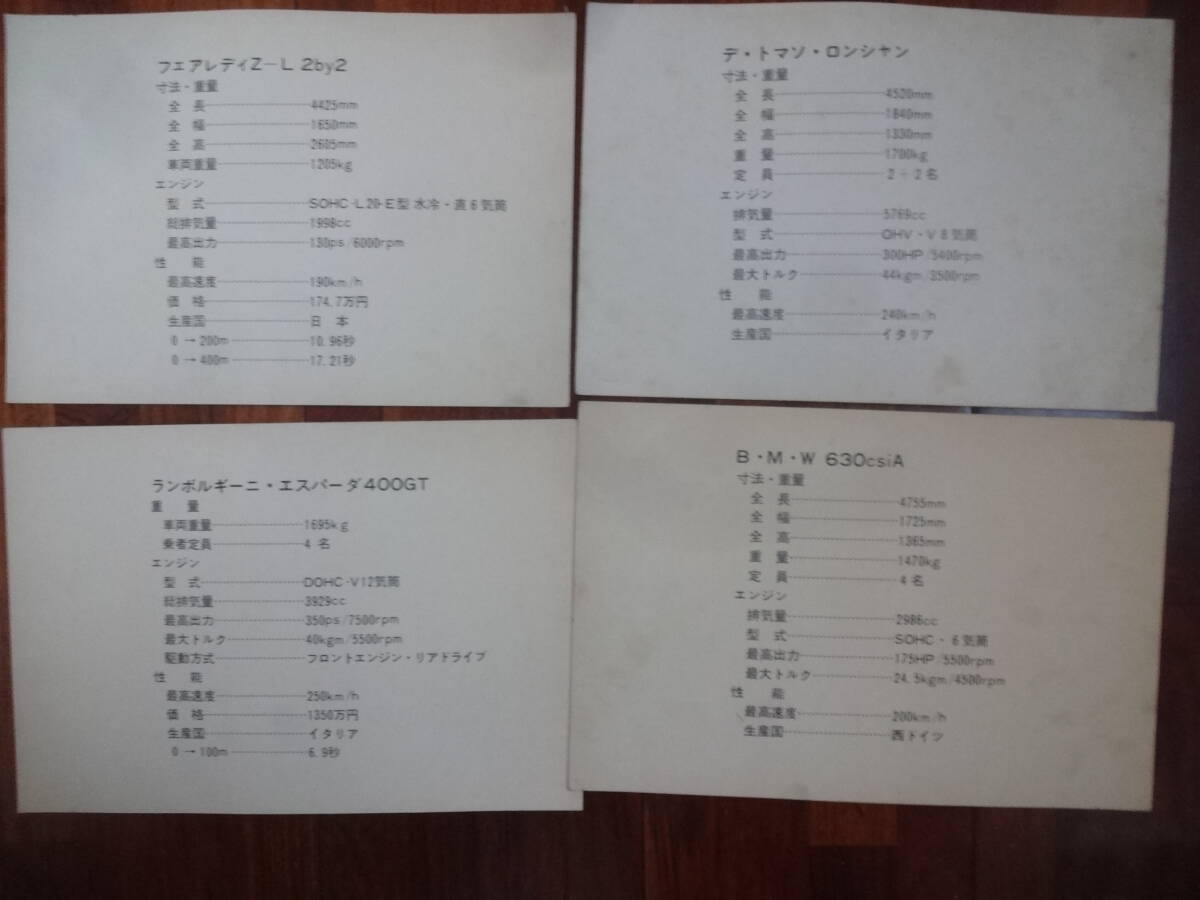 フェアレディZ-L 2by2
寸法・重量
全長 4425mm
全幅 1650mm
全高 2605mm
車両重量 1205kg
エンジン
型式 SOHC・L20-E型 水冷・直6気筒
総排気量 1998cc
最高出力 130ps/6000rpm
性能
最高速度 190km/h
価格 174.7万円
生産国 日本
0→200m 10.96秒
0→400m 17.21秒
デ・トマソ・ロンシャン
寸法・重量
全長 4520mm
全幅 1840mm
全高 1330mm
重量 1700kg
定員 2+2名
エンジン
排気量 5769cc
型式 OHV・V8気筒
最高出力 300HP/5400rpm
最大トルク 44kgm/3500rpm
性能
最高速度 240km/h
生産国 イタリア
ランボルギーニ・エスパーダ400GT
重量
車両重量 1695kg
乗者定員 4名
エンジン
型式 DOHC・V12気筒
総排気量 3929cc
最高出力 350ps/7500rpm
最大トルク 40kgm/5500rpm
駆動方式 フロントエンジン・リアドライブ
性能
最高速度 250km/h
価格 1350万円
生産国 イタリア
0→100m 6.9秒
B・M・W 630csiA
寸法・重量
全長 4755mm
全幅 1725mm
全高 1365mm
重量 1470kg
定員 4名
エンジン
排気量 2986cc
型式 SOHC・6気筒
最高出力 175HP/5500rpm
最大トルク 24.5kgm/4500rpm
性能
最高速度 200km/h
生産国 西ドイツ